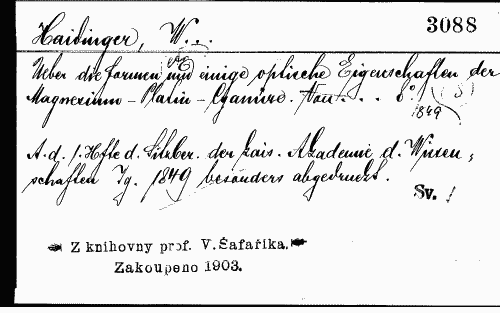 3088
Haidinger, W...
Ueber die Formen und einige optische Eigenschaften der
Magnesium-Platin-Cyanüre. Von . . . 8°.
1849
A. d. 1. Hfte d. Sitzber. der kais. Akademie d. Wissen,
schaften Jg. 1849 besonders abgedruckt.
Sv. 1
Z knihovny prof. V. Šafaříka.
Zakoupeno 1903.